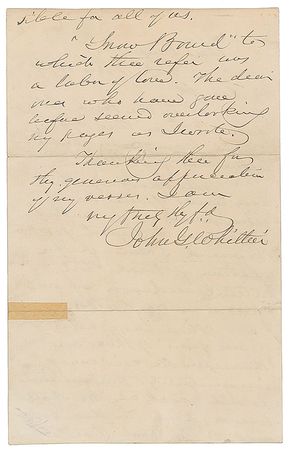 sible for all of us.
"Snow Bound" to
which thee refer was
a labor of love. The dear
ones who have gone
before seemed overlooking
my pages as I wrote.
Thanking thee for
thy generous appreciation
of my verses. I am
very truly thy fd
John G. Whittier